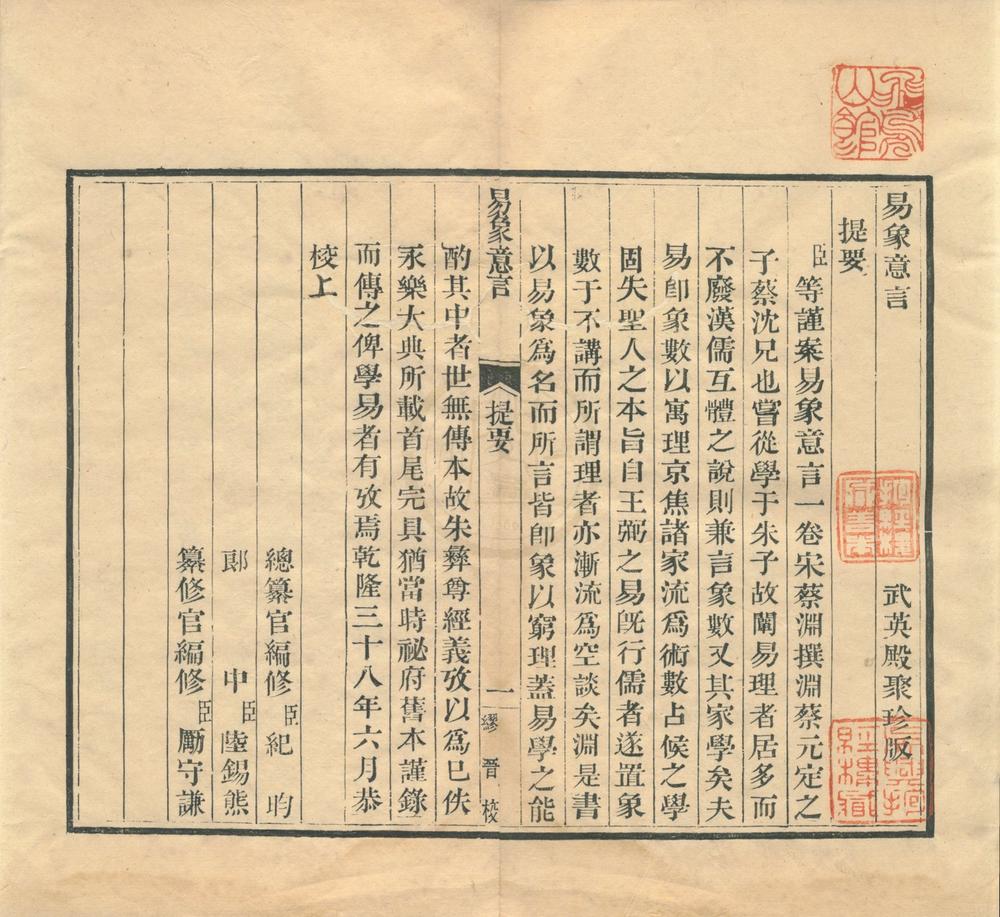 易象意言
武英殿聚珍版
提要
臣等謹案易象意言一卷宋蔡淵撰淵蔡元定之
子蔡沈兄也嘗從學于朱子故闡易理者居多而
不廢漢儒互體之說則兼言象數又其家學矣夫
易卽象數以寓理京焦諸家流爲術數占候之學
固失聖人之本旨自王弼之易旣行儒者遂置象
數于不講而所謂理者亦漸流爲空談矣淵是書
以易象爲名而所言皆卽象以窮理蓋易學之能
易象意言
提要
一
繆晉校
酌其中者世無傳本故朱彝尊經義攷以爲已佚
永樂大典所載首尾完具猶當時祕府舊本謹錄
而傳之俾學易者有攷焉乾隆三十八年六月恭
校上
總纂官編修臣紀昀
郎中臣陸錫熊
纂修官編修臣勵守謙